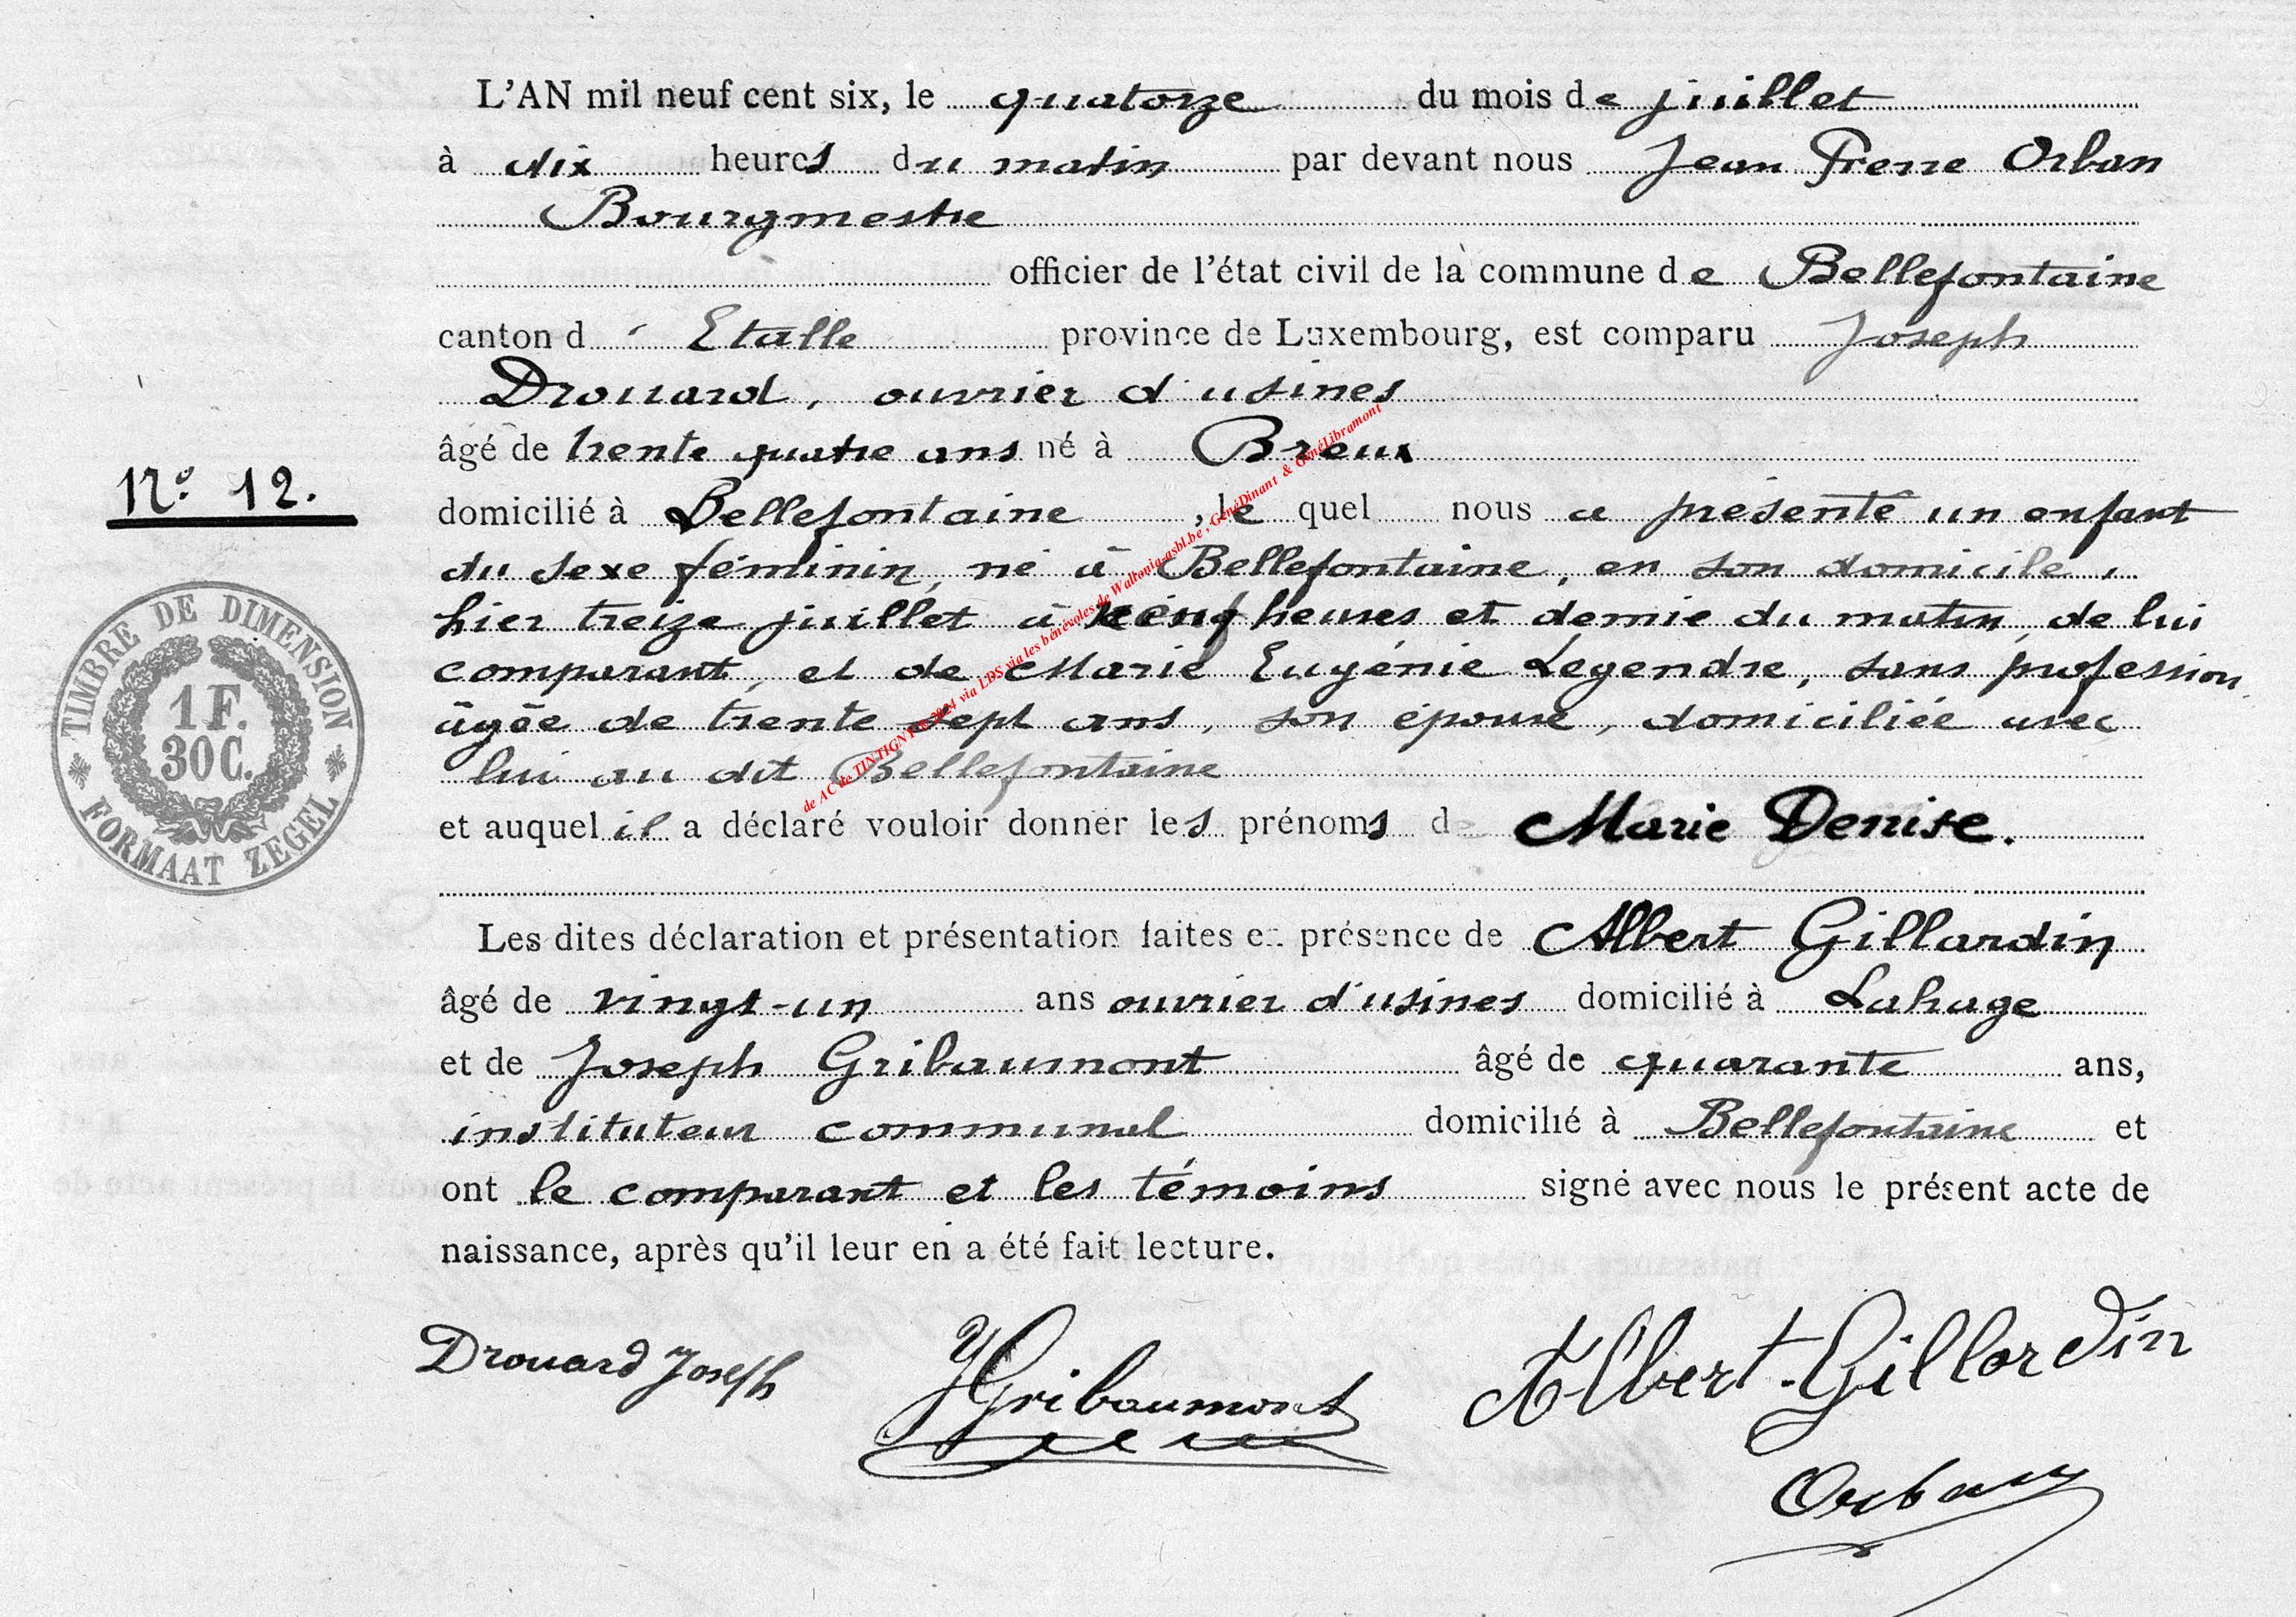 L'AN mil neuf cent six, le quatorze du mois de juillet
à dix heures du matin par devant nous Jean Pierre Orban
Bourgmestre
officier de l'état civil de la commune de Bellefontaine
canton d' Etalle province de Luxembourg, est comparu Joseph
Drouard, ouvrier d'usines
âgé de trente quatre ans né à Breux
N° 12.
domicilié à Bellefontaine, le quel nous a présenté un enfant
du sexe féminin, né à Bellefontaine, en son domicile,
hier treize juillet à neuf heures et demie du matin, de lui
comparant, et de Marie Eugénie Legendre, sans profession,
âgée de trente sept ans, son épouse, domiciliée avec
lui au dit Bellefontaine
TIMBRE DE DIMENSION
1 F.
30 C.
FORMAAT ZEGEL
et auquel il a déclaré vouloir donner les prénoms de Marie Denise.
Les dites déclaration et présentation faites en présence de Albert Gillardin
âgé de vingt-un ans ouvrier d'usines domicilié à Lahage
et de Joseph Gribaumont âgé de quarante ans,
instituteur communal domicilié à Bellefontaine et
ont le comparant et les témoins signé avec nous le présent acte de
naissance, après qu'il leur en a été fait lecture.
Drouard Joseph
JGribaumont
Albert Gillardin
Orban
de AC de TINTIGNY en 2024 via LDS via les bénévoles de Wallonia-asbl.be, GénéDinant & GénéLibramont